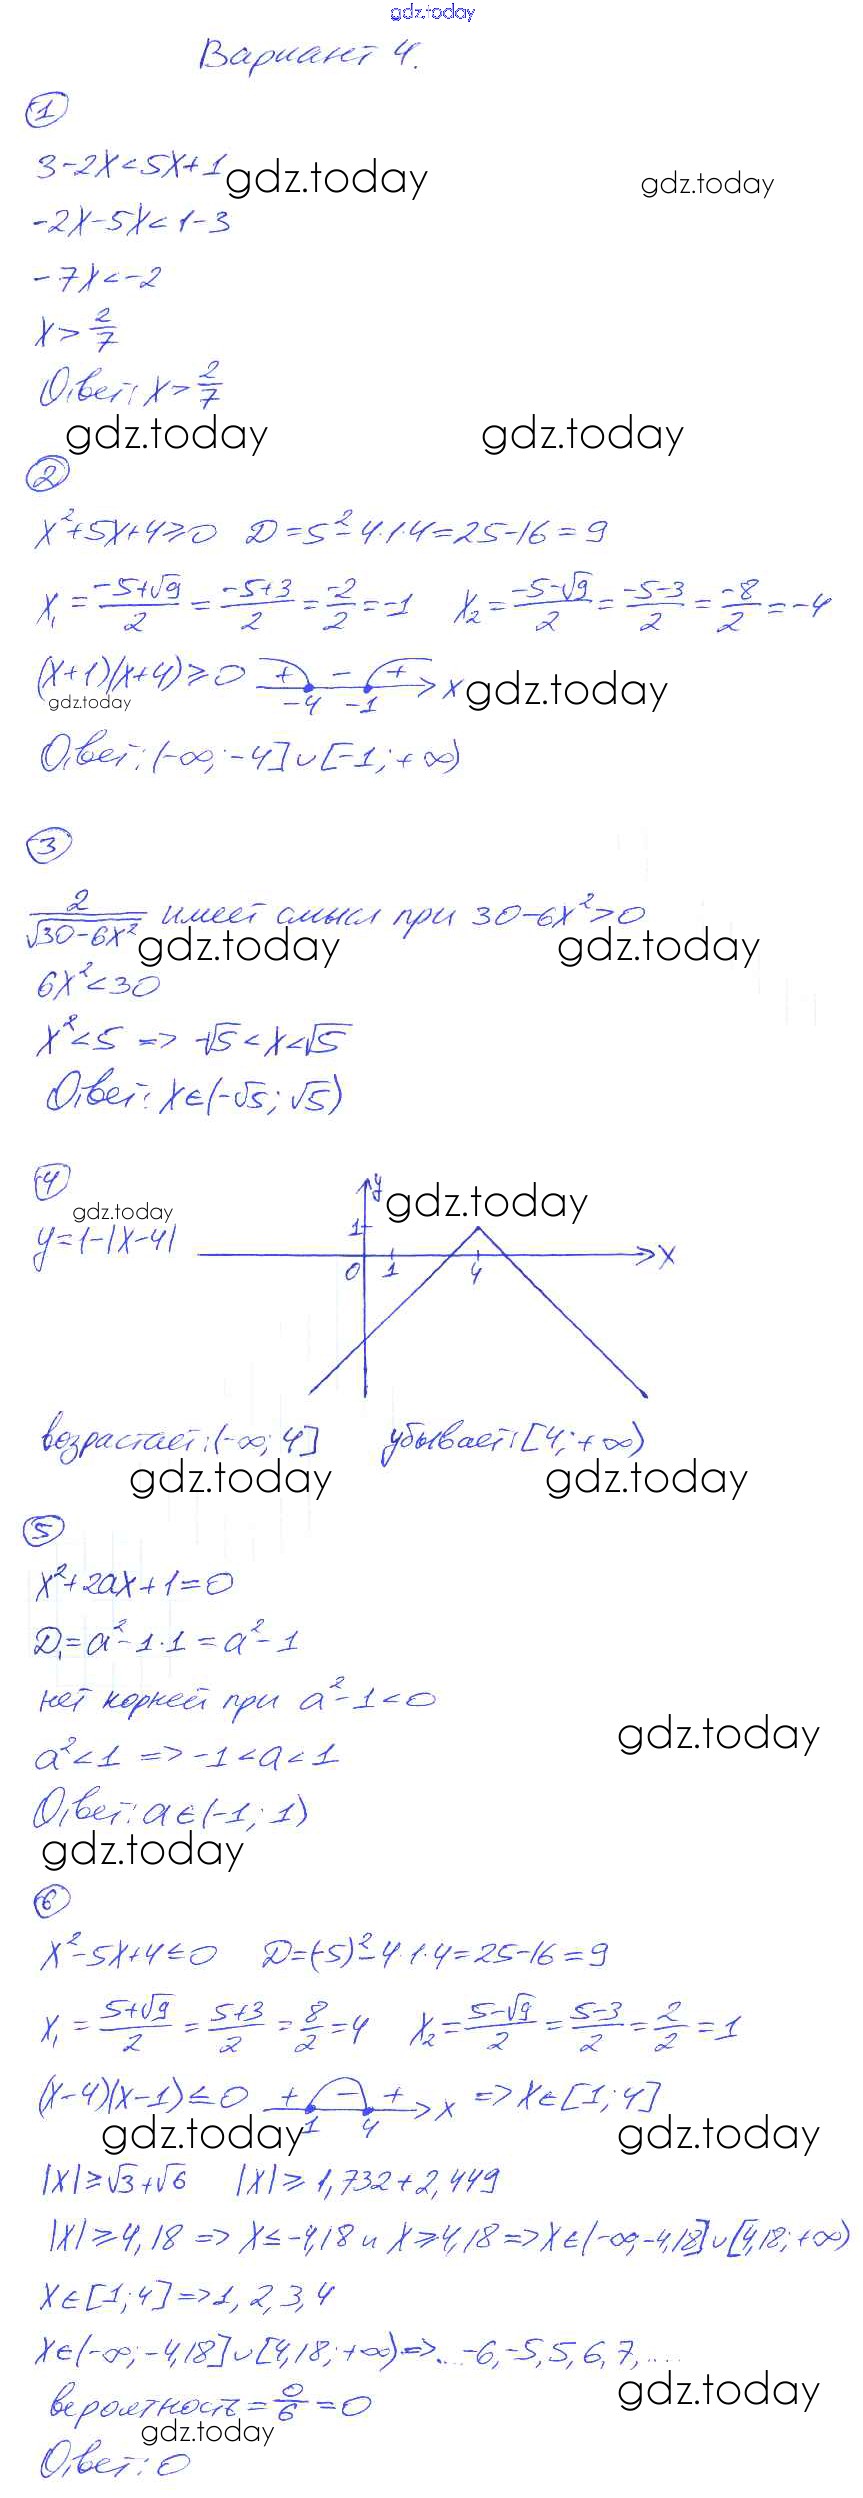 gdz.today
Вариант 4.
1
3-2x<5x+1
gdz.today
gdz.today
-2x-5x<1-3
-7x<-2
x>2/7
Ответ: x>2/7
gdz.today gdz.today
2
x²+5x+4≥0 D=5²-4·1·4=25-16=9
x₁=(-5+√9)/2=(-5+3)/2=-2/2=-1 x₂=(-5-√9)/2=(-5-3)/2=-8/2=-4
(x+1)(x+4)≥0 + - + -4 -1 x
gdz.today gdz.today
Ответ: (-∞;-4]∪[-1;+∞)
3
2/√(30-6x²) имеет смысл при 30-6x²>0
gdz.today gdz.today
6x²<30
x²<5 => -√5<x<√5
Ответ: x∈(-√5;√5)
4
gdz.today gdz.today
y=1-|x-4|
y
1
0 1 4 x
возрастает: (-∞;4] убывает: [4;+∞)
gdz.today gdz.today
5
x²+2ax+1=0
D₁=a²-1·1=a²-1
нет корней при a²-1<0
gdz.today
a²<1 => -1<a<1
Ответ: a∈(-1;1)
gdz.today
6
x²-5x+4≤0 D=(-5)²-4·1·4=25-16=9
x₁=(5+√9)/2=(5+3)/2=8/2=4 x₂=(5-√9)/2=(5-3)/2=2/2=1
(x-4)(x-1)≤0 + - + 1 4 x => x∈[1;4]
gdz.today gdz.today
|x|≥√3+√6 |x|≥1,732+2,449
|x|≥4,18 => x≤-4,18 и x≥4,18 => x∈(-∞;-4,18]∪[4,18;+∞)
x∈[1;4] => 1,2,3,4
x∈(-∞;-4,18]∪[4,18;+∞) => ...-6,-5,5,6,7,....
gdz.today
вероятность=0/6=0
gdz.today
Ответ: 0